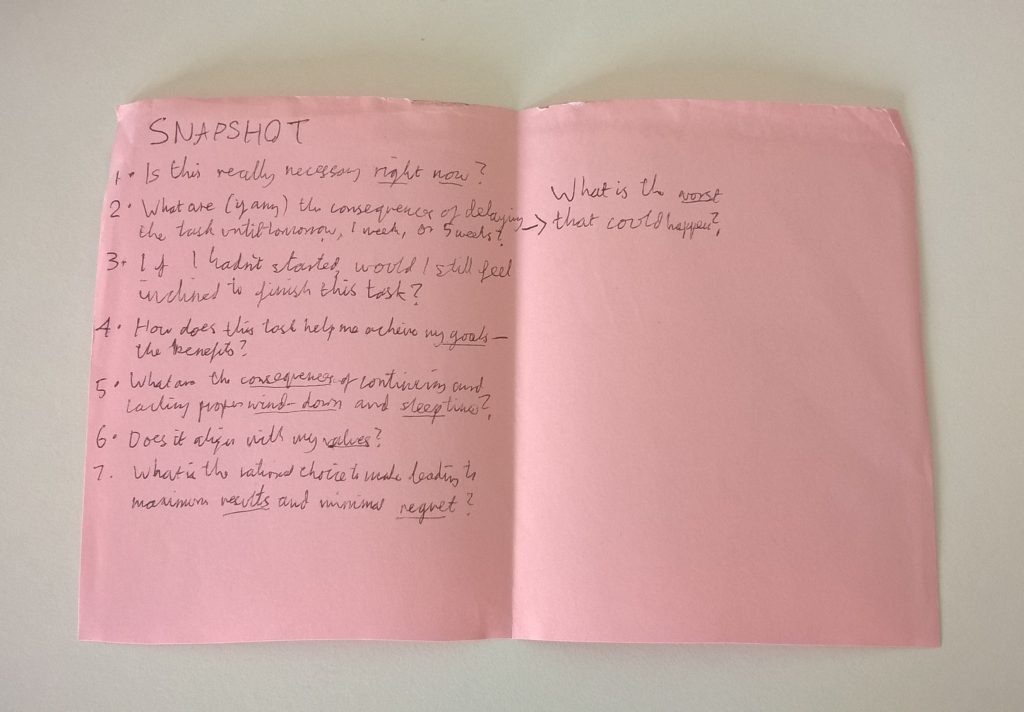 SNAPSHOT
1. Is this really necessary right now?
2. What are (if any) the consequences of delaying
the task until tomorrow, 1 week, or 5 weeks? → What is the worst
that could happen?
3. If I hadn't started, would I still feel
inclined to finish this task?
4. How does this task help me achieve my goals –
the benefits?
5. What are the consequences of continuing and
lacking proper wind-down and sleep times?
6. Does it align with my values?
7. What is the rational choice to make leading to
maximum results and minimal regret?